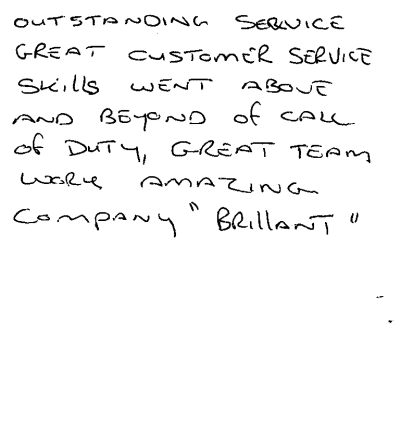 OUTSTANDING SERVICE
GREAT CUSTOMER SERVICE
Skills WENT ABOVE
AND BEYOND of CALL
of DUTY, GREAT TEAM
WORK AMAZING
COMPANY "BRILLANT"